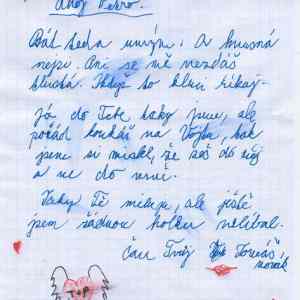 Ahoj Petro.
Psát teda umíš. A hnusná
nejsi. Ani se mě nezdáš
tlustá. Když to kluci říkaj.
já do Tebe taky jsem, ale
pořád koukáš na Vojtu, tak
jsem si myslel, že seš do něj
a ne do mně.
Taky Tě miluju, ale ještě
jsem žádnou holku nelíbal.
Čau Tvůj Tomáš
Novák
T+P